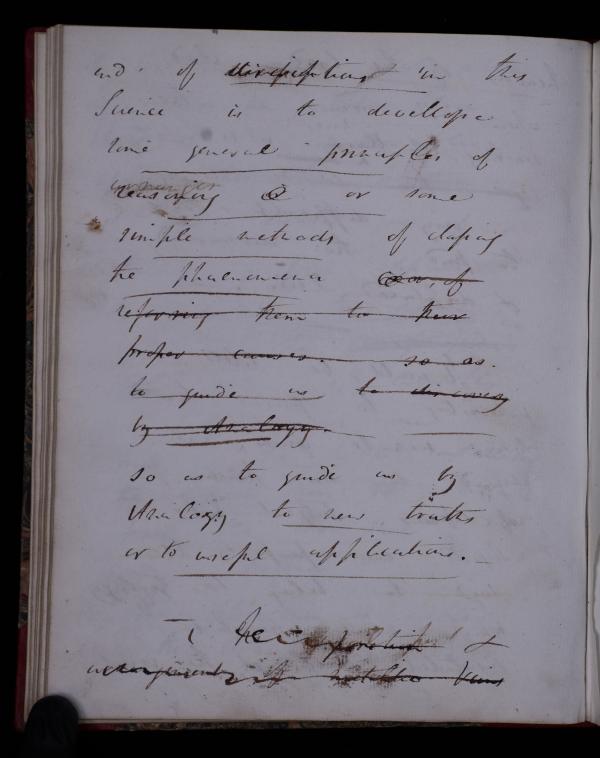 end of disquisitions in this
Science is to develope
some general principles of
reasoning or some
simple methods of classing
the phaenomena or of
referring them to their
proper causes. so as.
to guide us to discovery
by Analogy.
so as to guide us by
Analogy to new truths
or to useful applications.
The &
arrangements of